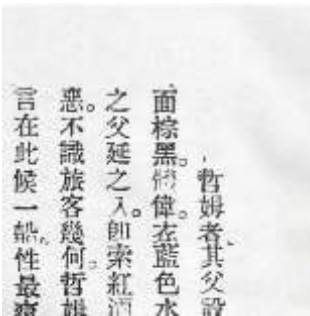 哲姆者、其父設
面棕黑。偉。衣藍色水
之父延之入。卽索紅酒
惡。不識旅客幾何。哲姆
言在此候一船。性最